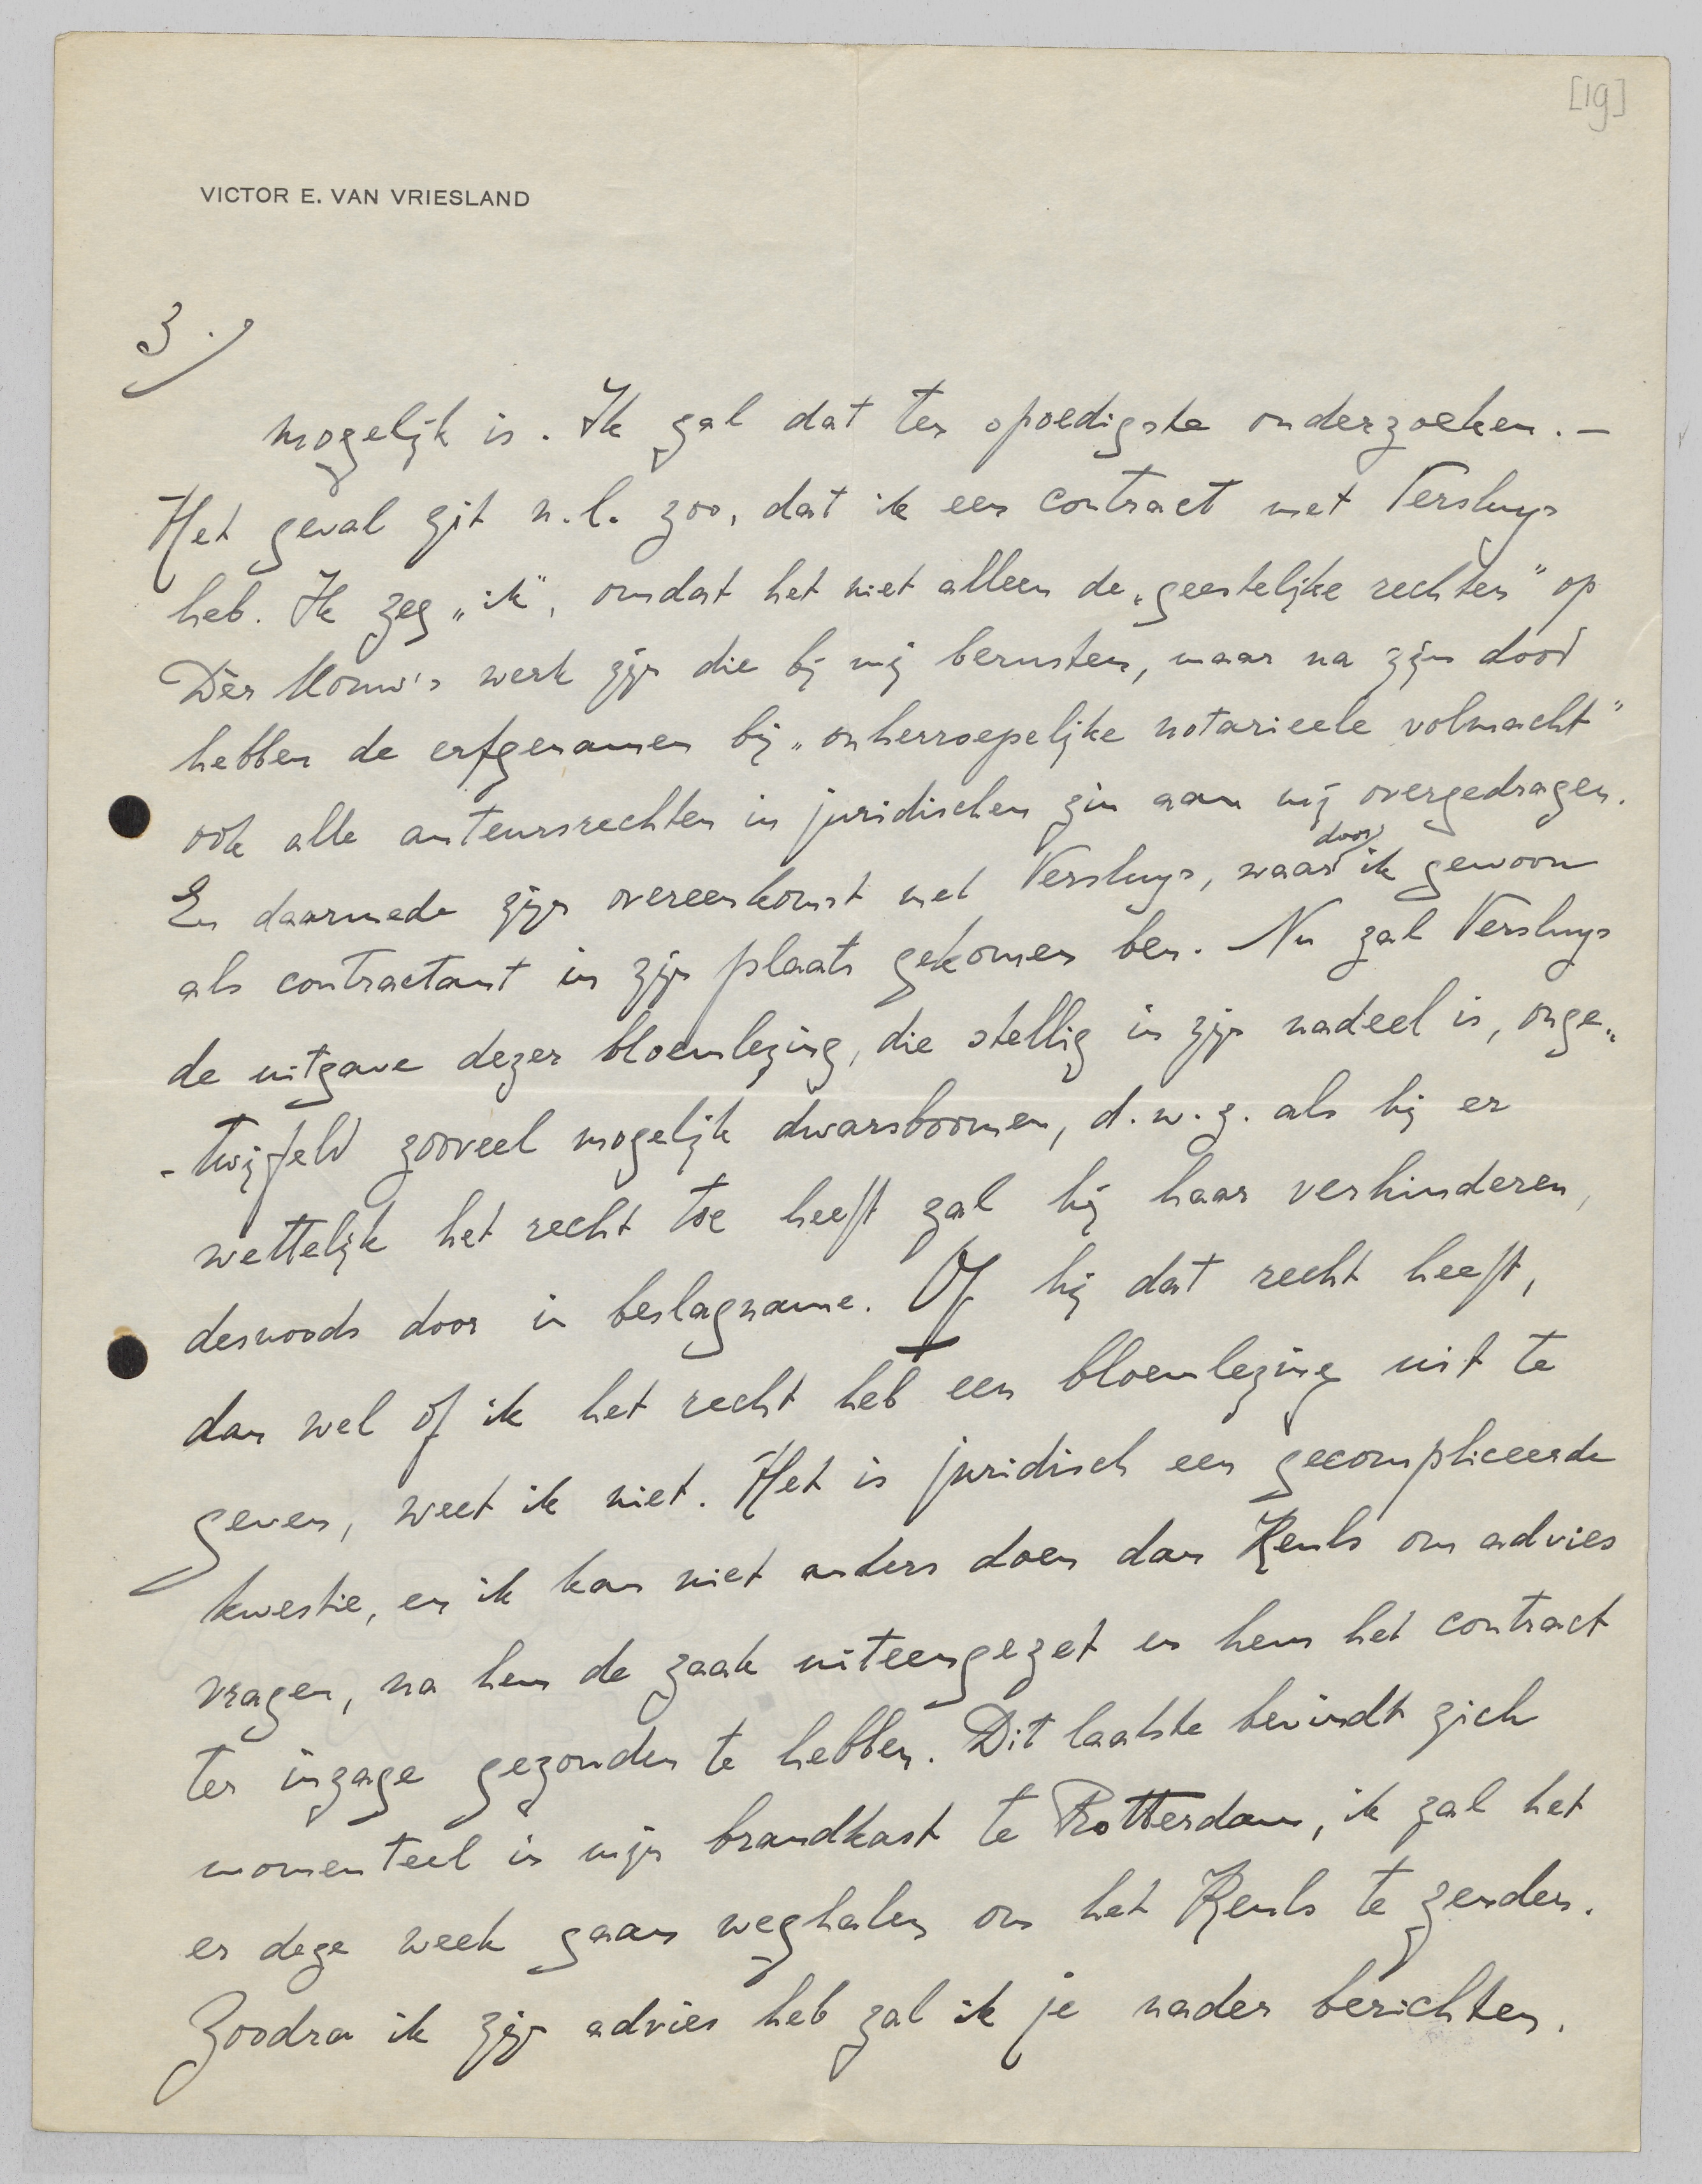 [19]
VICTOR E. VAN VRIESLAND
3.)
mogelijk is. Ik zal dat ten spoedigste onderzoeken. —
Het geval zit n.l. zoo, dat ik een contract met Versluys
heb. Ik zeg „ik", omdat het niet alleen de „geestelijke rechten" op
Dèr Mouw's werk zijn die bij mij berusten, maar na zijn dood
hebben de erfgenamen bij „onherroepelijke notarieele volmacht"
ook alle auteursrechten in juridischen zin aan mij overgedragen.
En daarmede zijn overeenkomst met Versluys, waardoor ik gewoon
als contractant in zijn plaats gekomen ben. Nu zal Versluys
de uitgave dezer bloemlezing, die stellig in zijn nadeel is, onge-
-twijfeld zooveel mogelijk dwarsboomen, d.w.z. als hij er
wettelijk het recht toe heeft zal hij haar verhinderen,
desnoods door in beslagname. Of hij dat recht heeft,
dan wel of ik het recht heb een bloemlezing uit te
geven, weet ik niet. Het is juridisch een gecompliceerde
kwestie, en ik kan niet anders doen dan Keuls om advies
vragen, na hem de zaak uiteengezet en hem het contract
ter inzage gezonden te hebben. Dit laatste bevindt zich
momenteel in mijn brandkast te Rotterdam, ik zal het
er deze week gaan weghalen om het Keuls te zenden.
Zoodra ik zijn advies heb zal ik je nader berichten.